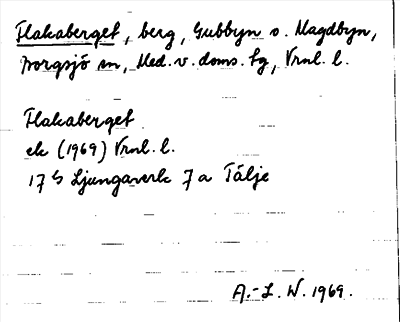 Flakaberget, berg, Gubbyn o. Magdbyn,
Torgsjö sn, Med. v. doms. tg, Vrnl. l.
Flakaberget
ek (1969) Vrnl. l.
17 G Ljungaverk 7 a Tälje
A.-L. W. 1969.